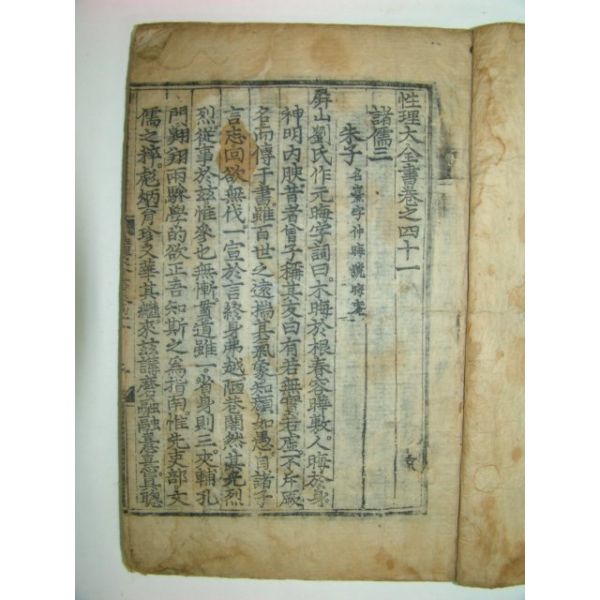 性理大全書卷之四十一
諸儒三
朱子 名熹字仲晦號晦菴
屏山劉氏作元晦字詞曰木晦於根春容曄敷人晦於身
神明內腴昔者曾子稱其友曰有若無實若虛不斥厥
名而傳于書雖百世之遠揣其氣象知顏如愚自諸子
言志回欲無伐一宣於言終身弗越陋巷闇然其光烈
烈從事於玆惟參也無慚貫道雖一省身則三夾輔孔
門翱翔兩驂學的欲正吾知斯之為指南惟先吏部文
儒之粹彪炳育珍文華其繼來玆講磨融融熹熹真聰